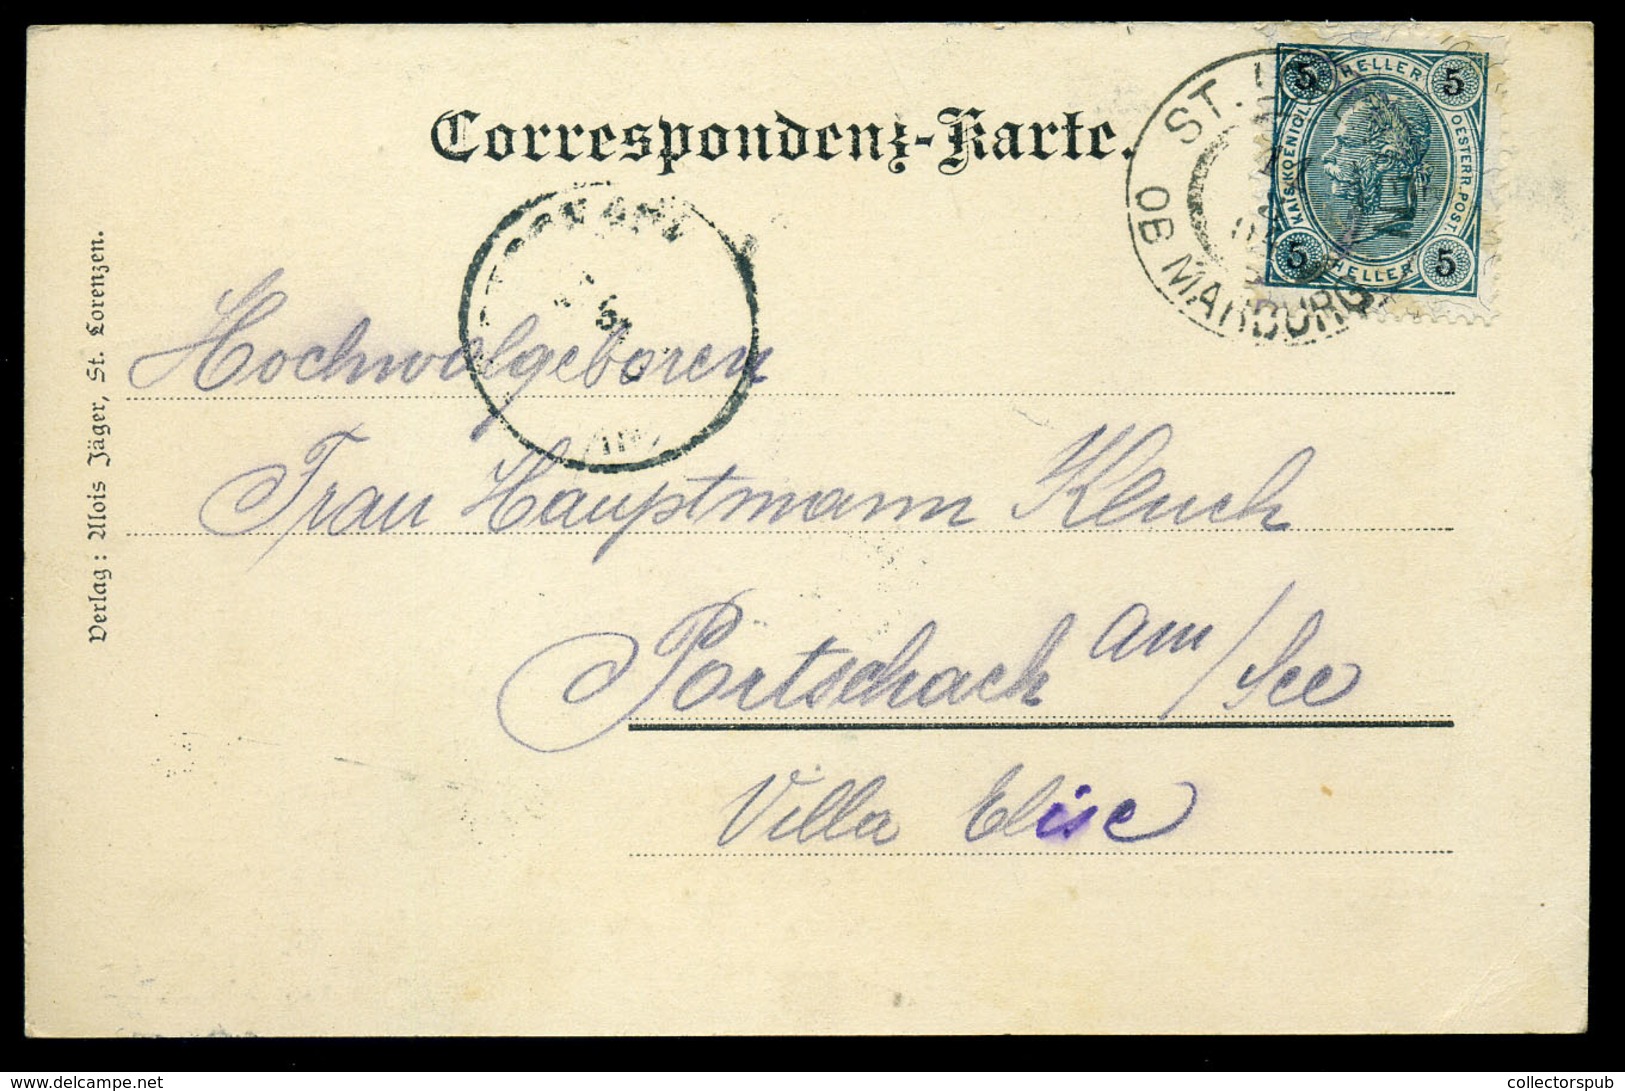 Correspondenz-Karte.
ST.
OB MARBURG
5 HELLER 5
KAISKOENIGL.
OESTERR.POST.
5 HELLER 5
5
Hochwolgeboren
Frau Hauptmann Kluch
Portschach am/See
Villa Elise
Verlag: Alois Jäger, St. Lorenzen.
collectorspub